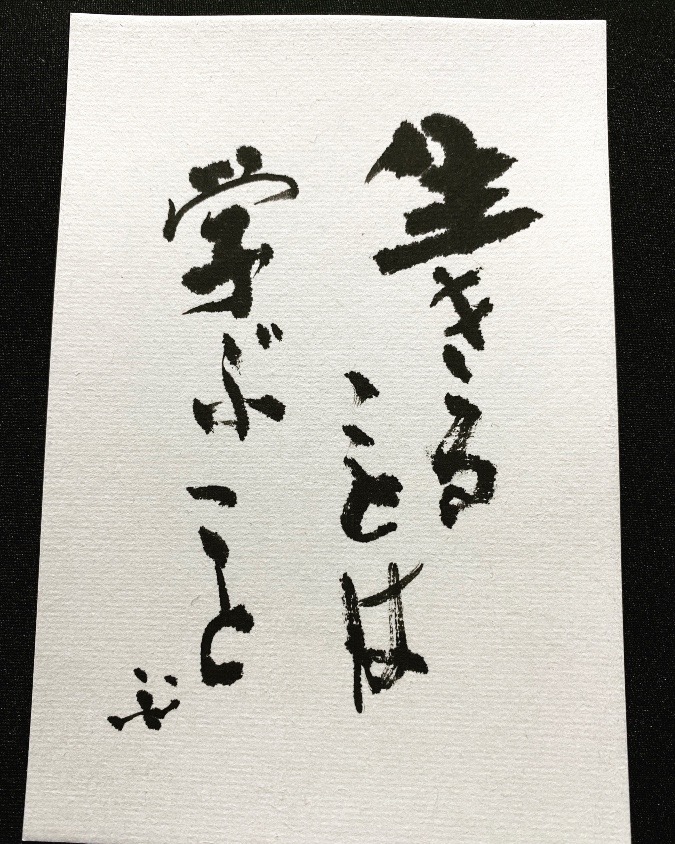 生きる
ことは
学ぶこと